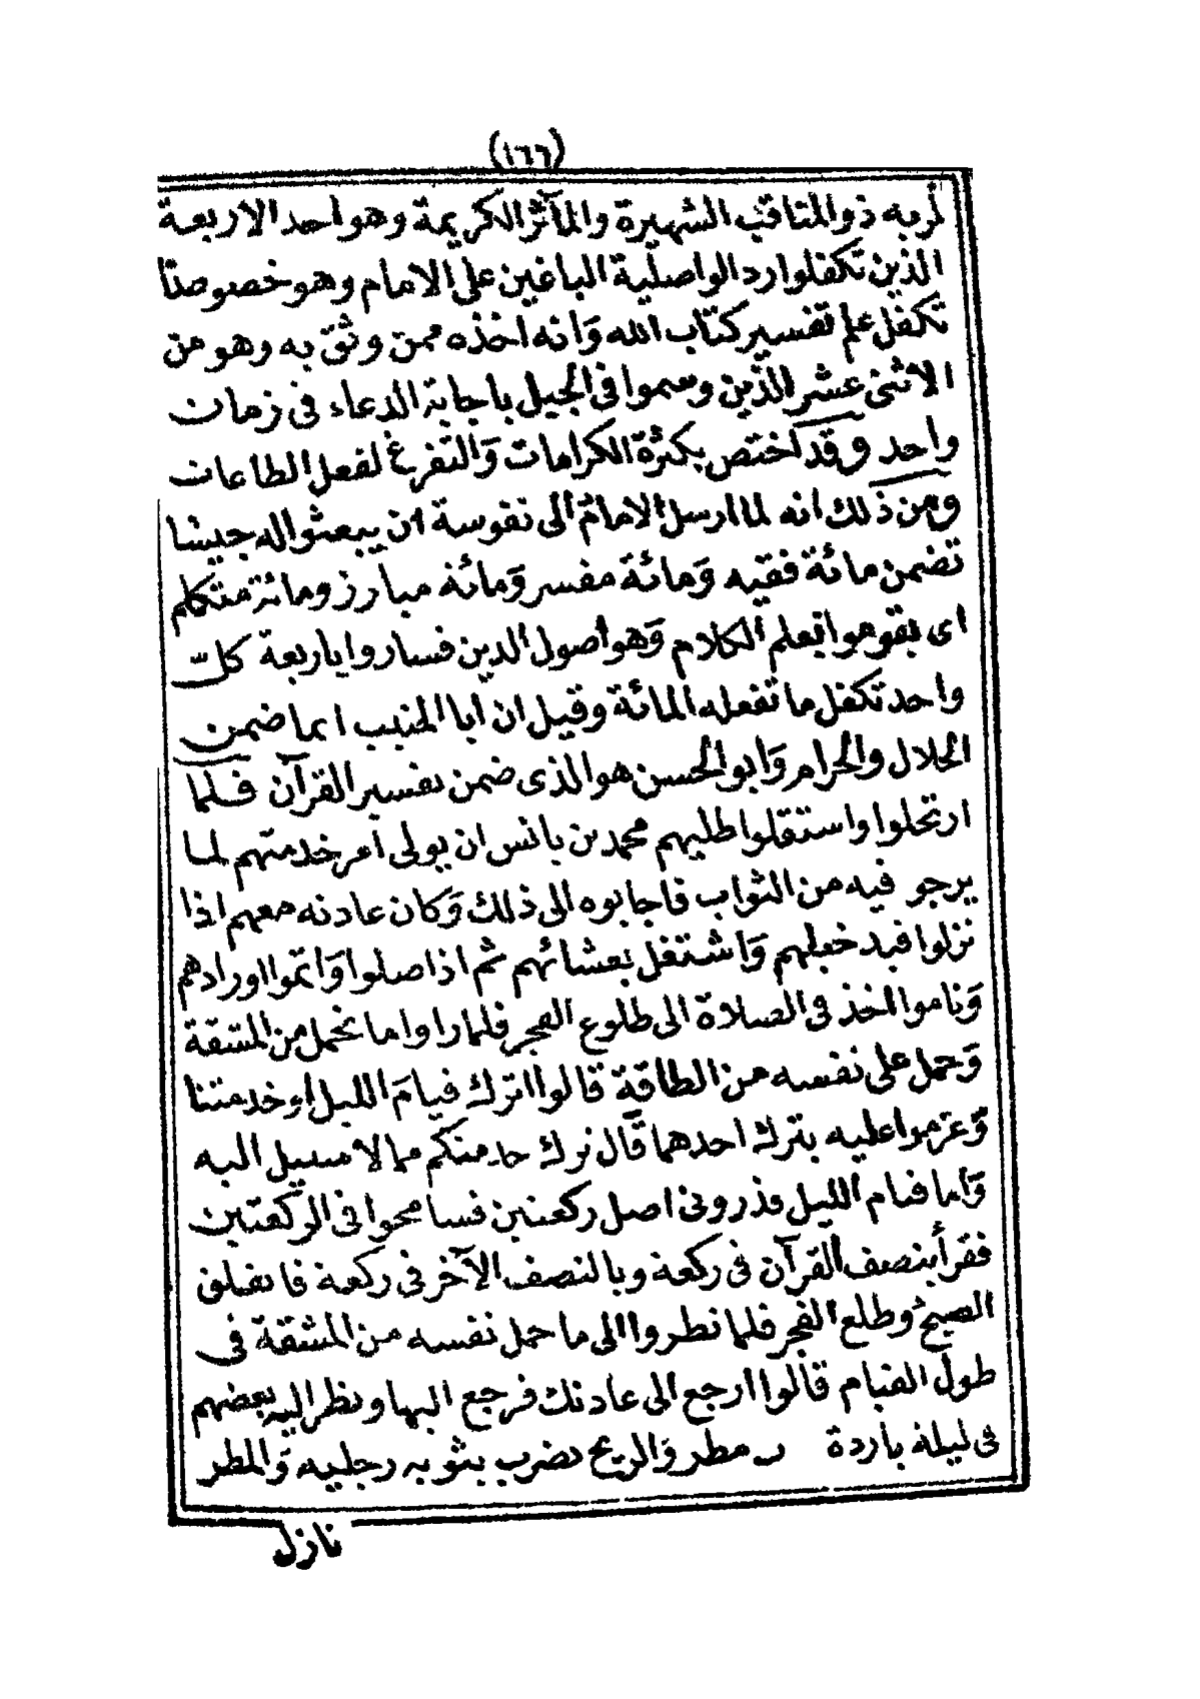 (١٦٦)
لربه ذو المناقب الشهيرة والمآثر الكريمة وهو احد الاربعة
الذين تكفلوا رد الواصلية الباغين على الامام وهو خصوصا
تكفل علم تفسير كتاب الله وَانه اخذه ممن وثق به وهو من
الاثنى عشر الذين وسموا فى الجبل باجابة الدعاء فى زمان
واحد وقد اختص بكثرة الكرامات وَالتفرغ لفعل الطاعات
ومن ذلك انه لما ارسل الامام الى نفوسة ان يبعثوا له جيشا
تضمن مائة فقيه وَمائة مفسر وَمائة مبارز ومائة متكلم
اى يقوموا بعلم الكلام وَهو اصول الدين فساروا باربعة كلّ
واحد تكفل ما تفعله المائة وقيل ان ابا المنيب انما ضمن
الحلال والحرام وَابو الحسن هو الذى ضمن تفسير القرآن فلما
ارتحلوا واستقلوا طلبهم محمد بن يانس ان يولى امر خدمتهم لما
يرجو فيه من الثواب فاجابوه الى ذلك وَكان عادته معهم اذا
نزلوا قيد خيلهم وَاشتغل بعشائهم ثم اذا صلوا وَاتموا اورادهم
وَناموا اخذ فى الصلاة الى طلوع الفجر فلما راوا ما تحمل من المشقة
وَحمل على نفسه من الطاقة قالوا اترك قيامَ الليل او خدمتنا
وَعزموا عليه بترك احدهما قال ترك خدمتكم مما لا سبيل اليه
وَاما قيام الليل فذرونى اصل ركعتين فسامحوا فى الركعتين
فقرأ بنصف القرآن فى ركعة وبالنصف الآخر فى ركعة فانفلق
الصبح وطلع الفجر فلما نظروا الى ما حمل نفسه من المشقة فى
طول القيام قالوا ارجع الى عادتك فرجع اليها ونظر اليه بعضهم
فى ليلة باردة مطر وَالريح تضرب بثوبه رجليه وَالمطر
نازل